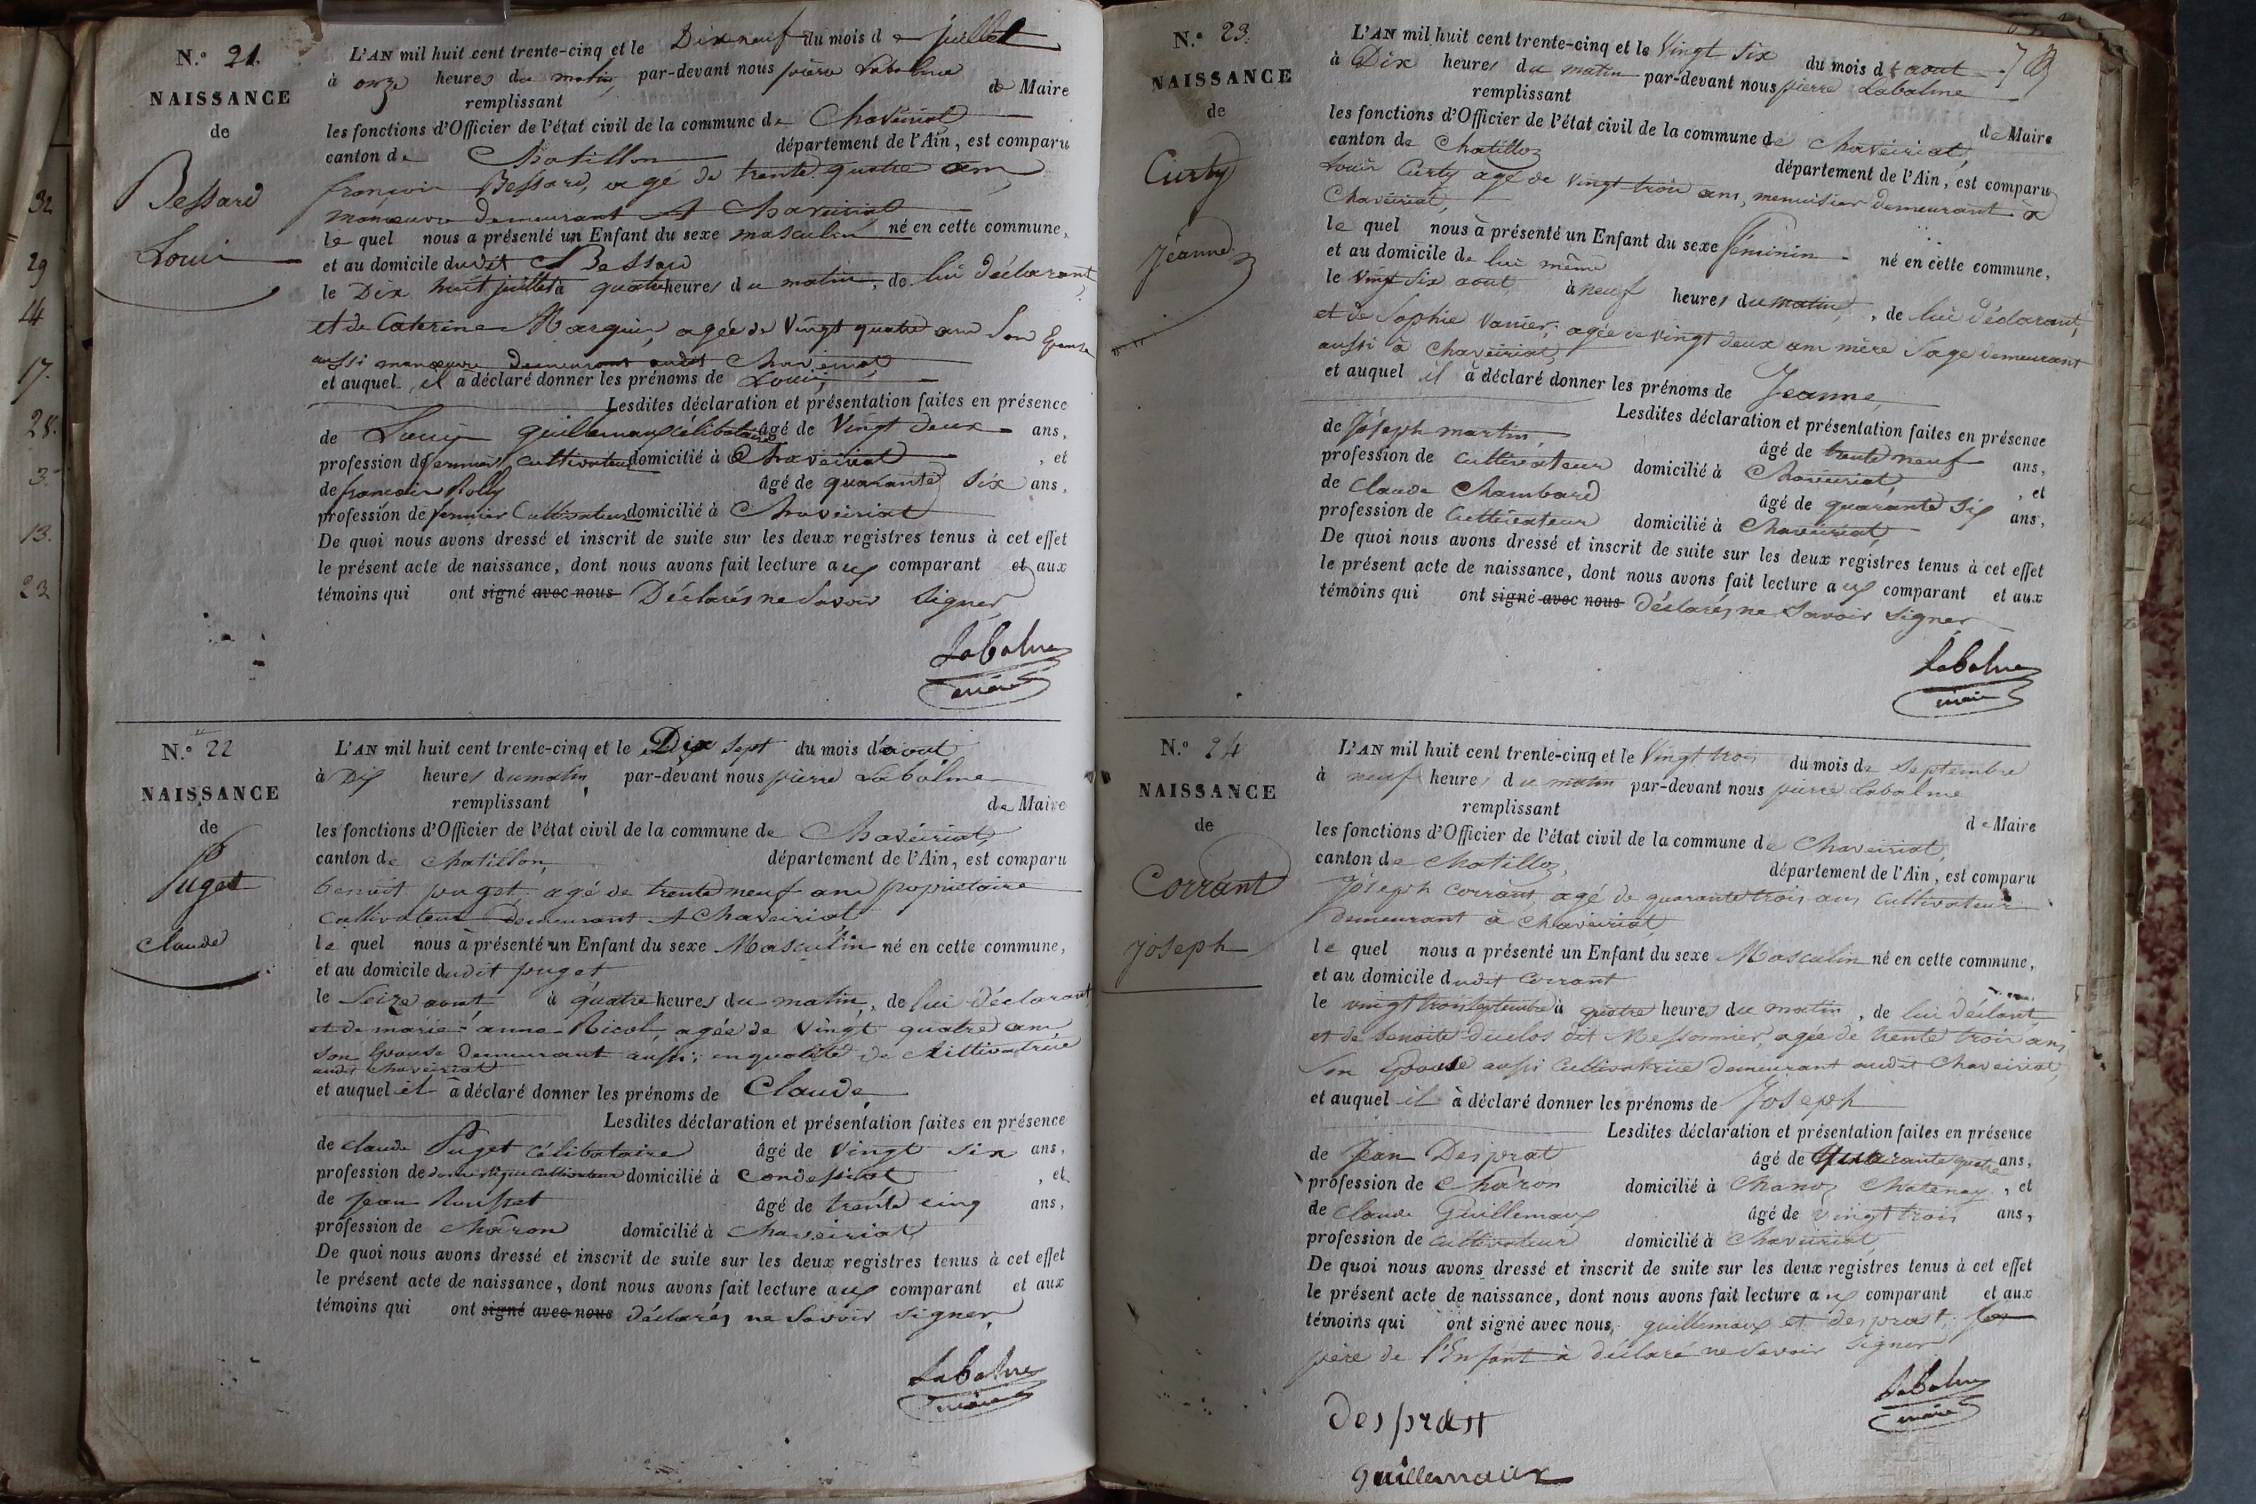 32
29
44
17.
28.
3.
13.
23
N.° 21.
NAISSANCE
de
Bessard
Louis
L'AN mil huit cent trente-cinq et le Dix neuf du mois de juillet
à onze heures du matin, par-devant nous pierre Labalme
remplissant de Maire
les fonctions d'Officier de l'état civil de la commune de Chaveiriat
canton de Chatillon département de l'Ain, est comparu
francois Bessard, agé de trente quatre ans,
manoeuvre demeurant A Chaveiriat
le quel nous a présenté un Enfant du sexe masculin né en cette commune,
et au domicile dudit Bessard
le Dix huit juillet à quatre heures du matin, de lui déclarant
et de Caterine Marguin, agée de Vingt quatre ans Son Epouse
aussi manoeuvre demeurant audit Chaveiriat
et auquel il a déclaré donner les prénoms de Louis,
Lesdites déclaration et présentation faites en présence
de Louis guillemaux célibataire âgé de Vingt deux ans,
profession de fermier cultivateur domicilié à Chaveiriat , et
de francois Rolly âgé de quarante six ans,
profession de fermier Cultivateur domicilié à Chaveiriat
De quoi nous avons dressé et inscrit de suite sur les deux registres tenus à cet effet
le présent acte de naissance, dont nous avons fait lecture aux comparant et aux
témoins qui ont signé avec nous Déclarés ne Savoir Signer
Labalme
maire
N.° 22
NAISSANCE
de
Puget
Claude
L'AN mil huit cent trente-cinq et le Dix sept du mois d'aout
à Dix heures du matin par-devant nous pierre Labalme
remplissant de Maire
les fonctions d'Officier de l'état civil de la commune de Chaveiriat,
canton de Chatillon, département de l'Ain, est comparu
benoit puget, agé de trente neuf ans propriétaire
cultivateur Demeurant A Chaveiriat
le quel nous à présenté un Enfant du sexe Masculin né en cette commune,
et au domicile dudit puget
le Seize aout, à quatre heures du matin, de lui déclarant
et de marie-anne Ricol, agée de Vingt quatre ans
son Epouse demeurant aussi, en qualité de Cultivatrice
audit Chaveiriat
et auquel il à déclaré donner les prénoms de Claude,
Lesdites déclaration et présentation faites en présence
de claude Puget célibataire âgé de Vingt six ans,
profession de domestique Cultivateur domicilié à Condessiat , et
de jean Rousset âgé de trente cinq ans,
profession de Charon domicilié à Chaveiriat
De quoi nous avons dressé et inscrit de suite sur les deux registres tenus à cet effet
le présent acte de naissance, dont nous avons fait lecture aux comparant et aux
témoins qui ont signé avec nous déclarés ne Savoir signer,
Labalme
maire
N.° 23.
NAISSANCE
de
Curty
Jeanne
L'AN mil huit cent trente-cinq et le Vingt six du mois de aout
à Dix heures du matin par-devant nous pierre Labalme
remplissant de Maire
les fonctions d'Officier de l'état civil de la commune de Chaveiriat,
canton de Chatillon département de l'Ain, est comparu
Louis Curty agé de Vingt trois ans, menuisier demeurant à
Chaveiriat,
le quel nous à présenté un Enfant du sexe féminin né en cette commune,
et au domicile de lui même
le Vingt six aout, à neuf heures du matin, , de lui déclarant,
et de Sophie Vanier, agée de vingt deux ans mère Sage demeurant
aussi à Chaveiriat,
et auquel il à déclaré donner les prénoms de Jeanne,
Lesdites déclaration et présentation faites en présence
de Joseph martin, âgé de trente neuf ans,
profession de Cultivateur domicilié à Chaveiriat, , et
de Claude Chambard âgé de quarante six ans,
profession de Cultivateur domicilié à Chaveiriat,
De quoi nous avons dressé et inscrit de suite sur les deux registres tenus à cet effet
le présent acte de naissance, dont nous avons fait lecture aux comparant et aux
témoins qui ont signé avec nous déclarés ne Savoir Signer
Labalme
maire
N.° 24
NAISSANCE
de
Corrant
joseph
L'AN mil huit cent trente-cinq et le Vingt trois du mois de Septembre
à neuf heures du matin par-devant nous pierre Labalme
remplissant de Maire
les fonctions d'Officier de l'état civil de la commune de Chaveiriat,
canton de Chatillon, département de l'Ain, est comparu
Joseph Corrant, agé de quarante trois ans Cultivateur
demeurant à Chaveiriat
le quel nous a présenté un Enfant du sexe Masculin né en cette commune,
et au domicile dudit Corrant
le vingt trois septembre à quatre heures du matin, de lui déclarant,
et de benoite duclos dit Messonnier, agée de trente trois ans
Son Epouse aussi Cultivatrice demeurant audit Chaveiriat,
et auquel il à déclaré donner les prénoms de Joseph
Lesdites déclaration et présentation faites en présence
de Jean Desprat âgé de quarante quatre ans,
profession de Charon domicilié à Chanoz Chatenay , et
de Claude Guillemaux âgé de vingt trois ans,
profession de Cultivateur domicilié à Chaveiriat
De quoi nous avons dressé et inscrit de suite sur les deux registres tenus à cet effet
le présent acte de naissance, dont nous avons fait lecture aux comparant et aux
témoins qui ont signé avec nous, guillemaux et desprat,
père de l'Enfant à déclaré ne Savoir Signer
Labalme
maire
desprat
guillemaux